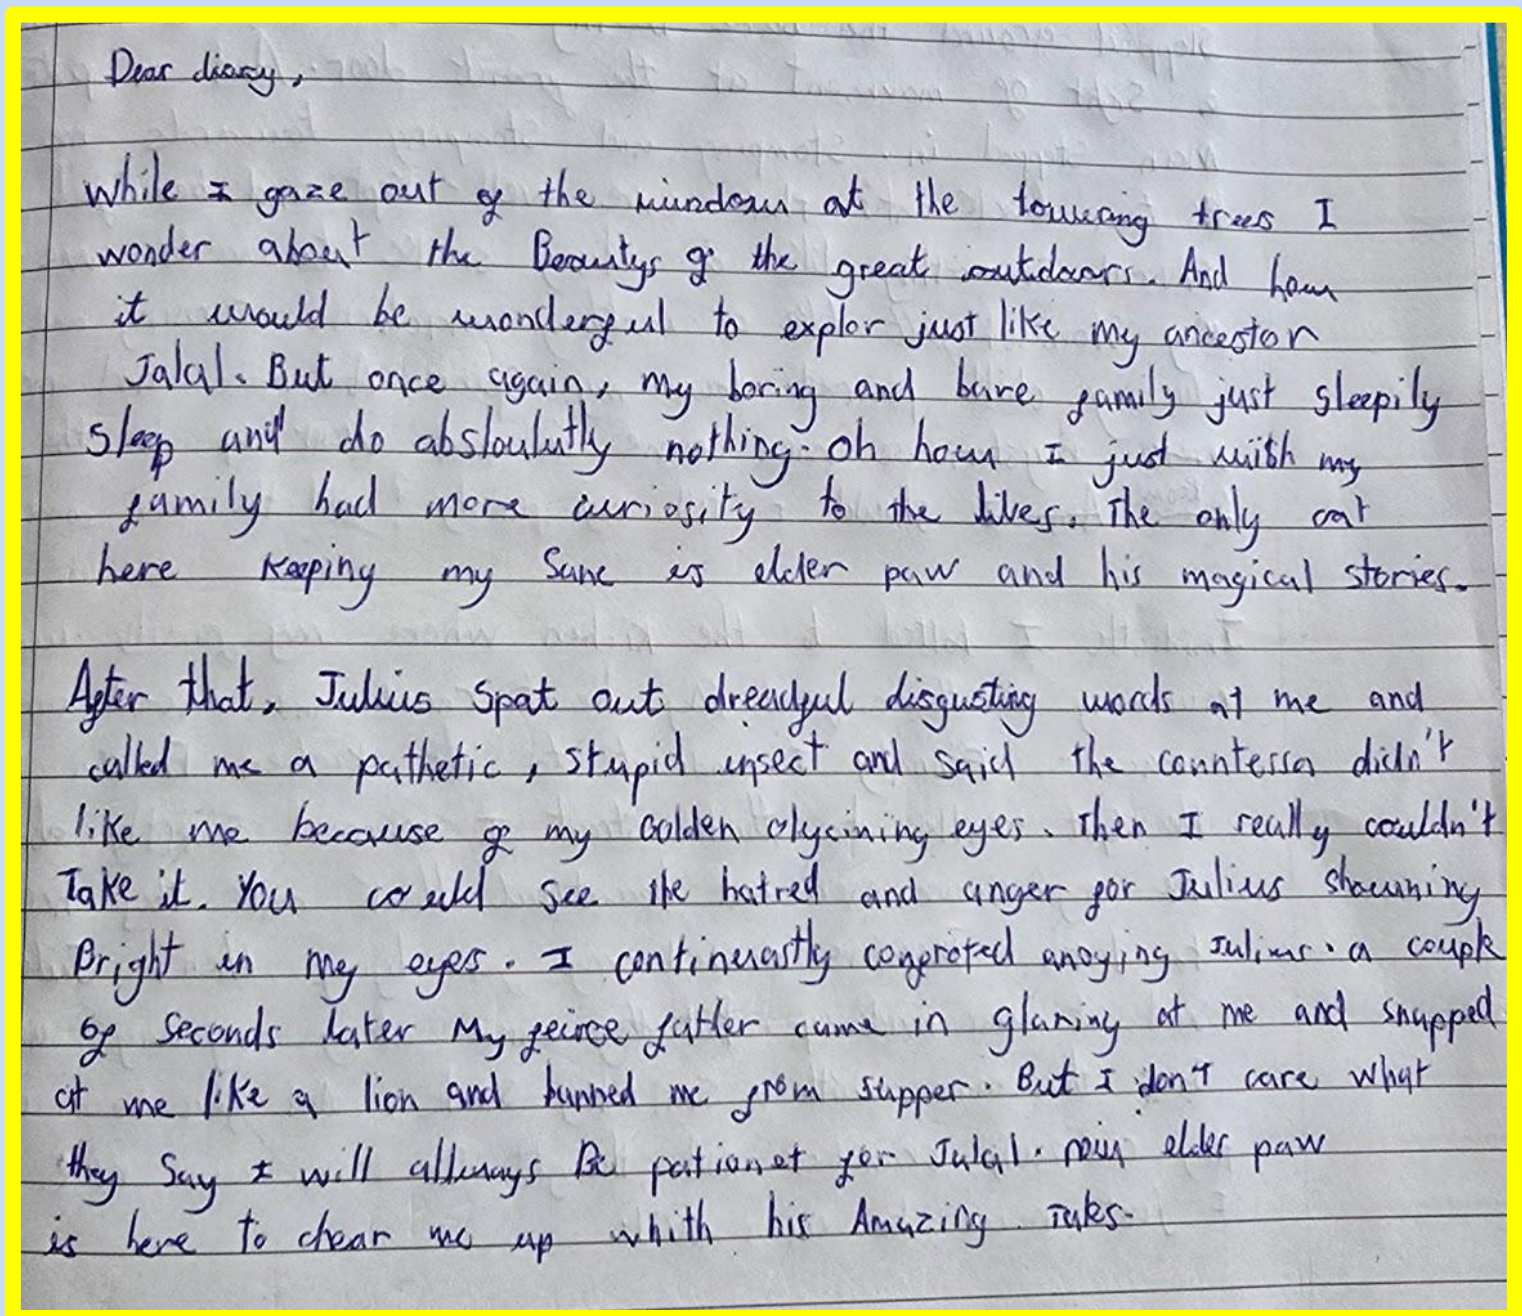 Dear diary,
While I gaze out of the window at the towering trees I
wonder about the Beautys of the great outdoors. And how
it would be wonderful to explor just like my ancestor
Jalal. But once again, my boring and bare family just sleepily
sleep and do absloulutly nothing. Oh how I just wish my
family had more curiosity to the lives. The only cat
here keeping my Sane is elder paw and his magical stories.
After that, Julius spat out dreadful disgusting words at me and
called me a pathetic, stupid insect and said the conntessa didn't
like me because of my golden eyes. Then I really couldn't
Take it. You could see the hatred and anger for Julius showning
Bright in my eyes. I confroted anoying Julius. a couple
of seconds later My feirce father came in glaring at me and snapped
at me like a lion and banned me from supper. But I don't care what
they say I will allways Be pationet for Jalal. now elder paw
is here to chear me up whith his Amazing Tales.